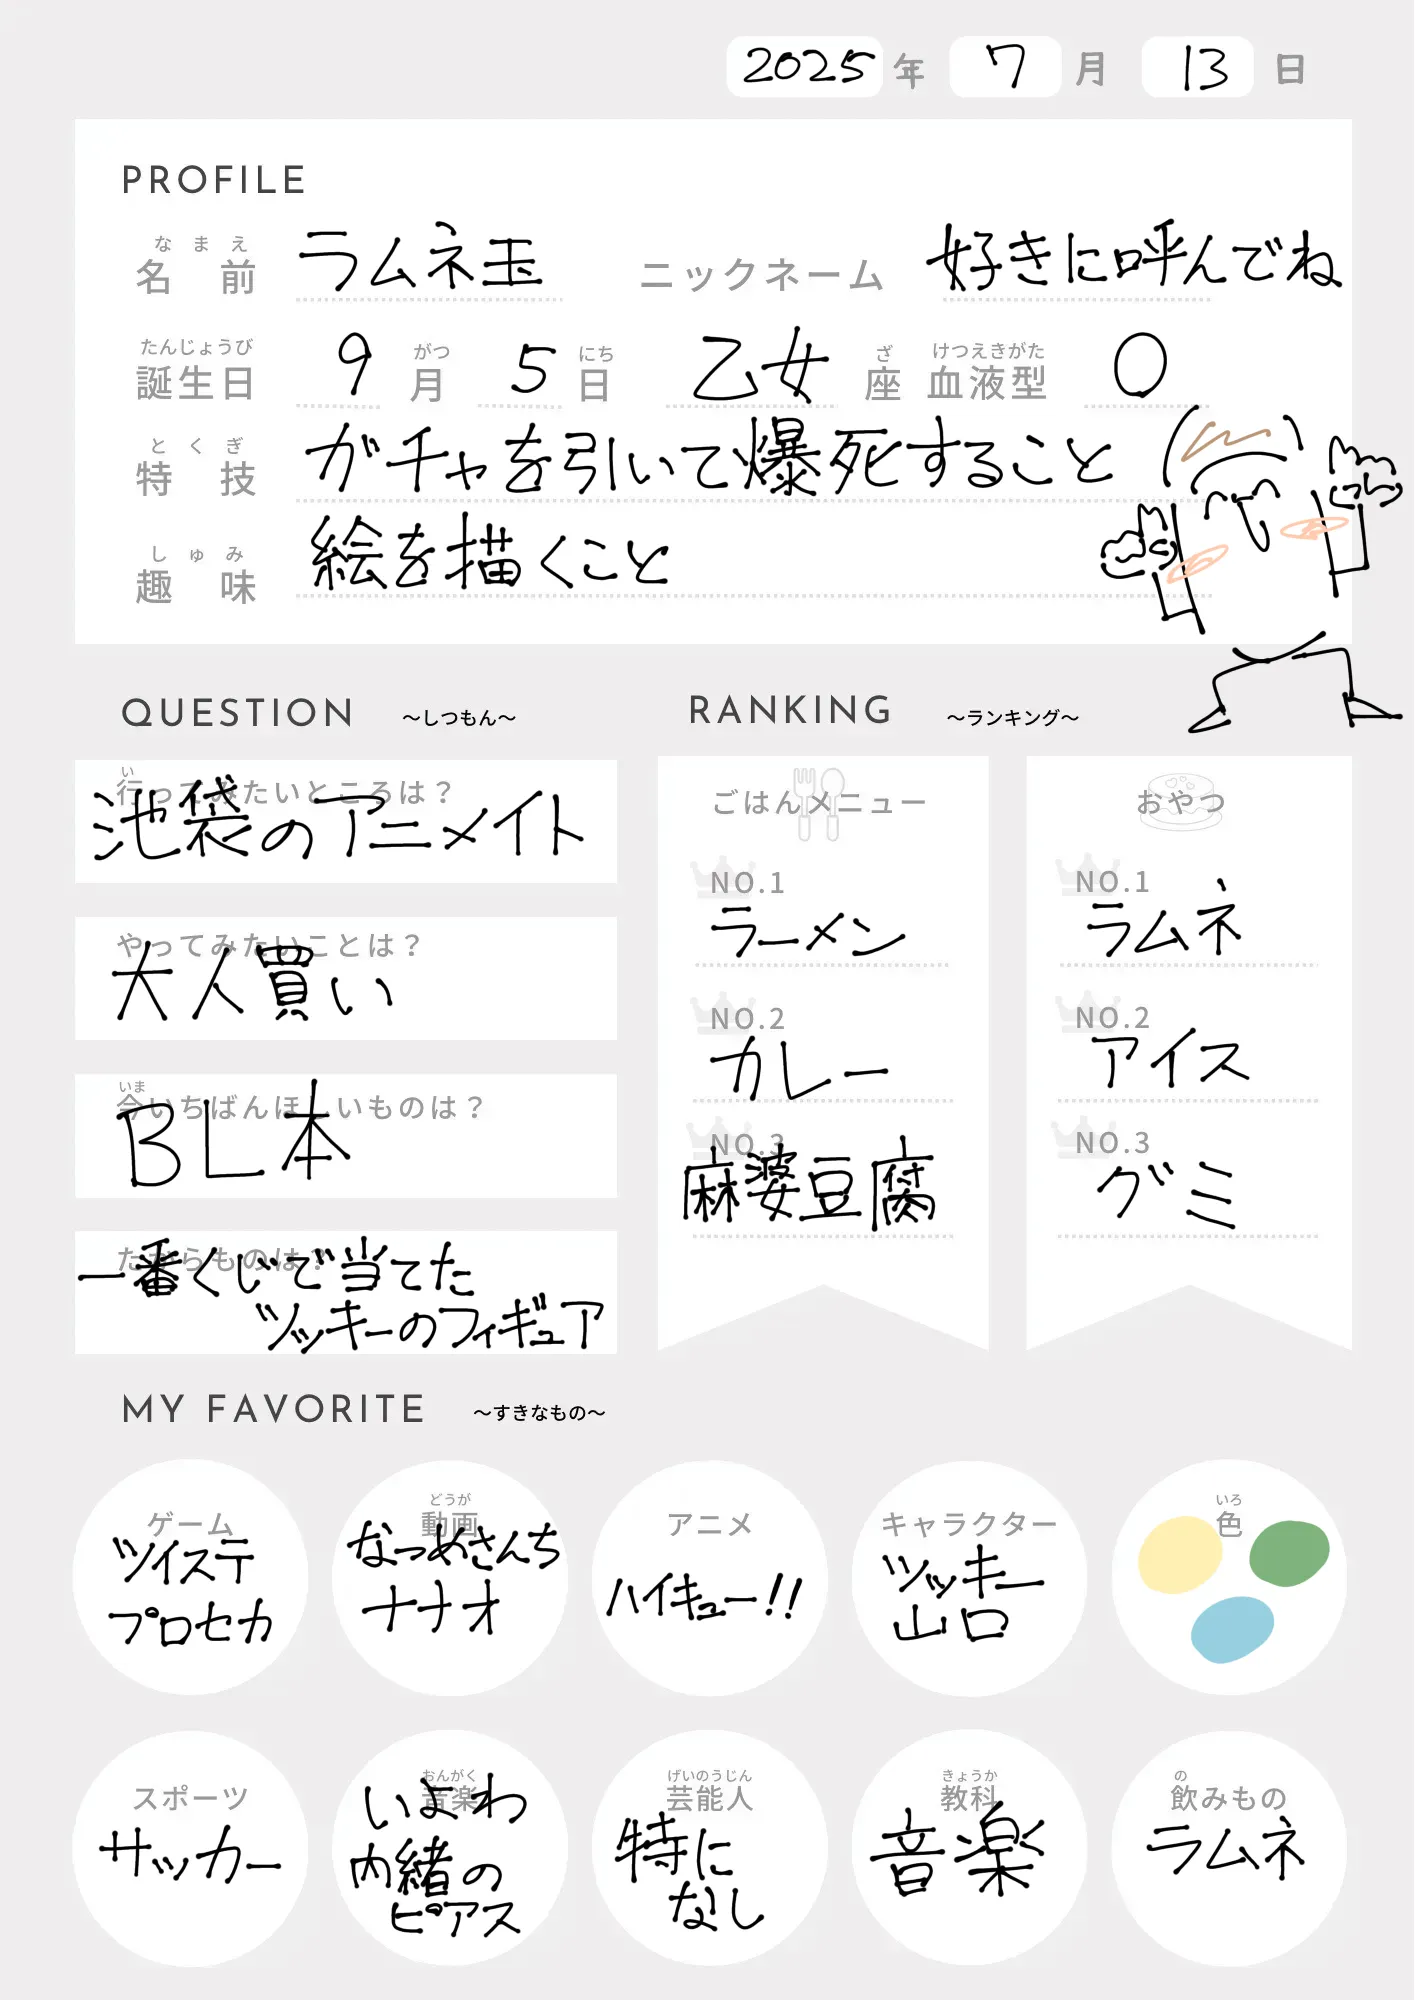 2025年 7月 13日
PROFILE
なまえ
名前 ラムネ玉 ニックネーム 好きに呼んでね
たんじょうび がつ にち ざ けつえきがた
誕生日 9月 5日 乙女座 血液型 O
とくぎ
特技 ガチャを引いて爆死すること
しゅみ
趣味 絵を描くこと
QUESTION ～しつもん～
い
行ってみたいところは？
池袋のアニメイト
やってみたいことは？
大人買い
いま
今いちばんほしいものは？
BL本
たからものは？
一番くじで当てた
ツッキーのフィギュア
RANKING ～ランキング～
ごはんメニュー
NO.1
ラーメン
NO.2
カレー
NO.3
麻婆豆腐
おやつ
NO.1
ラムネ
NO.2
アイス
NO.3
グミ
MY FAVORITE ～すきなもの～
ゲーム
ツイステ
プロセカ
どうが
動画
なつめさんち
ナナオ
アニメ
ハイキュー!!
キャラクター
ツッキー
山口
いろ
色
スポーツ
サッカー
おんがく
音楽
いよわ
内緒の
ピアス
げいのうじん
芸能人
特に
なし
きょうか
教科
音楽
の
飲みもの
ラムネ